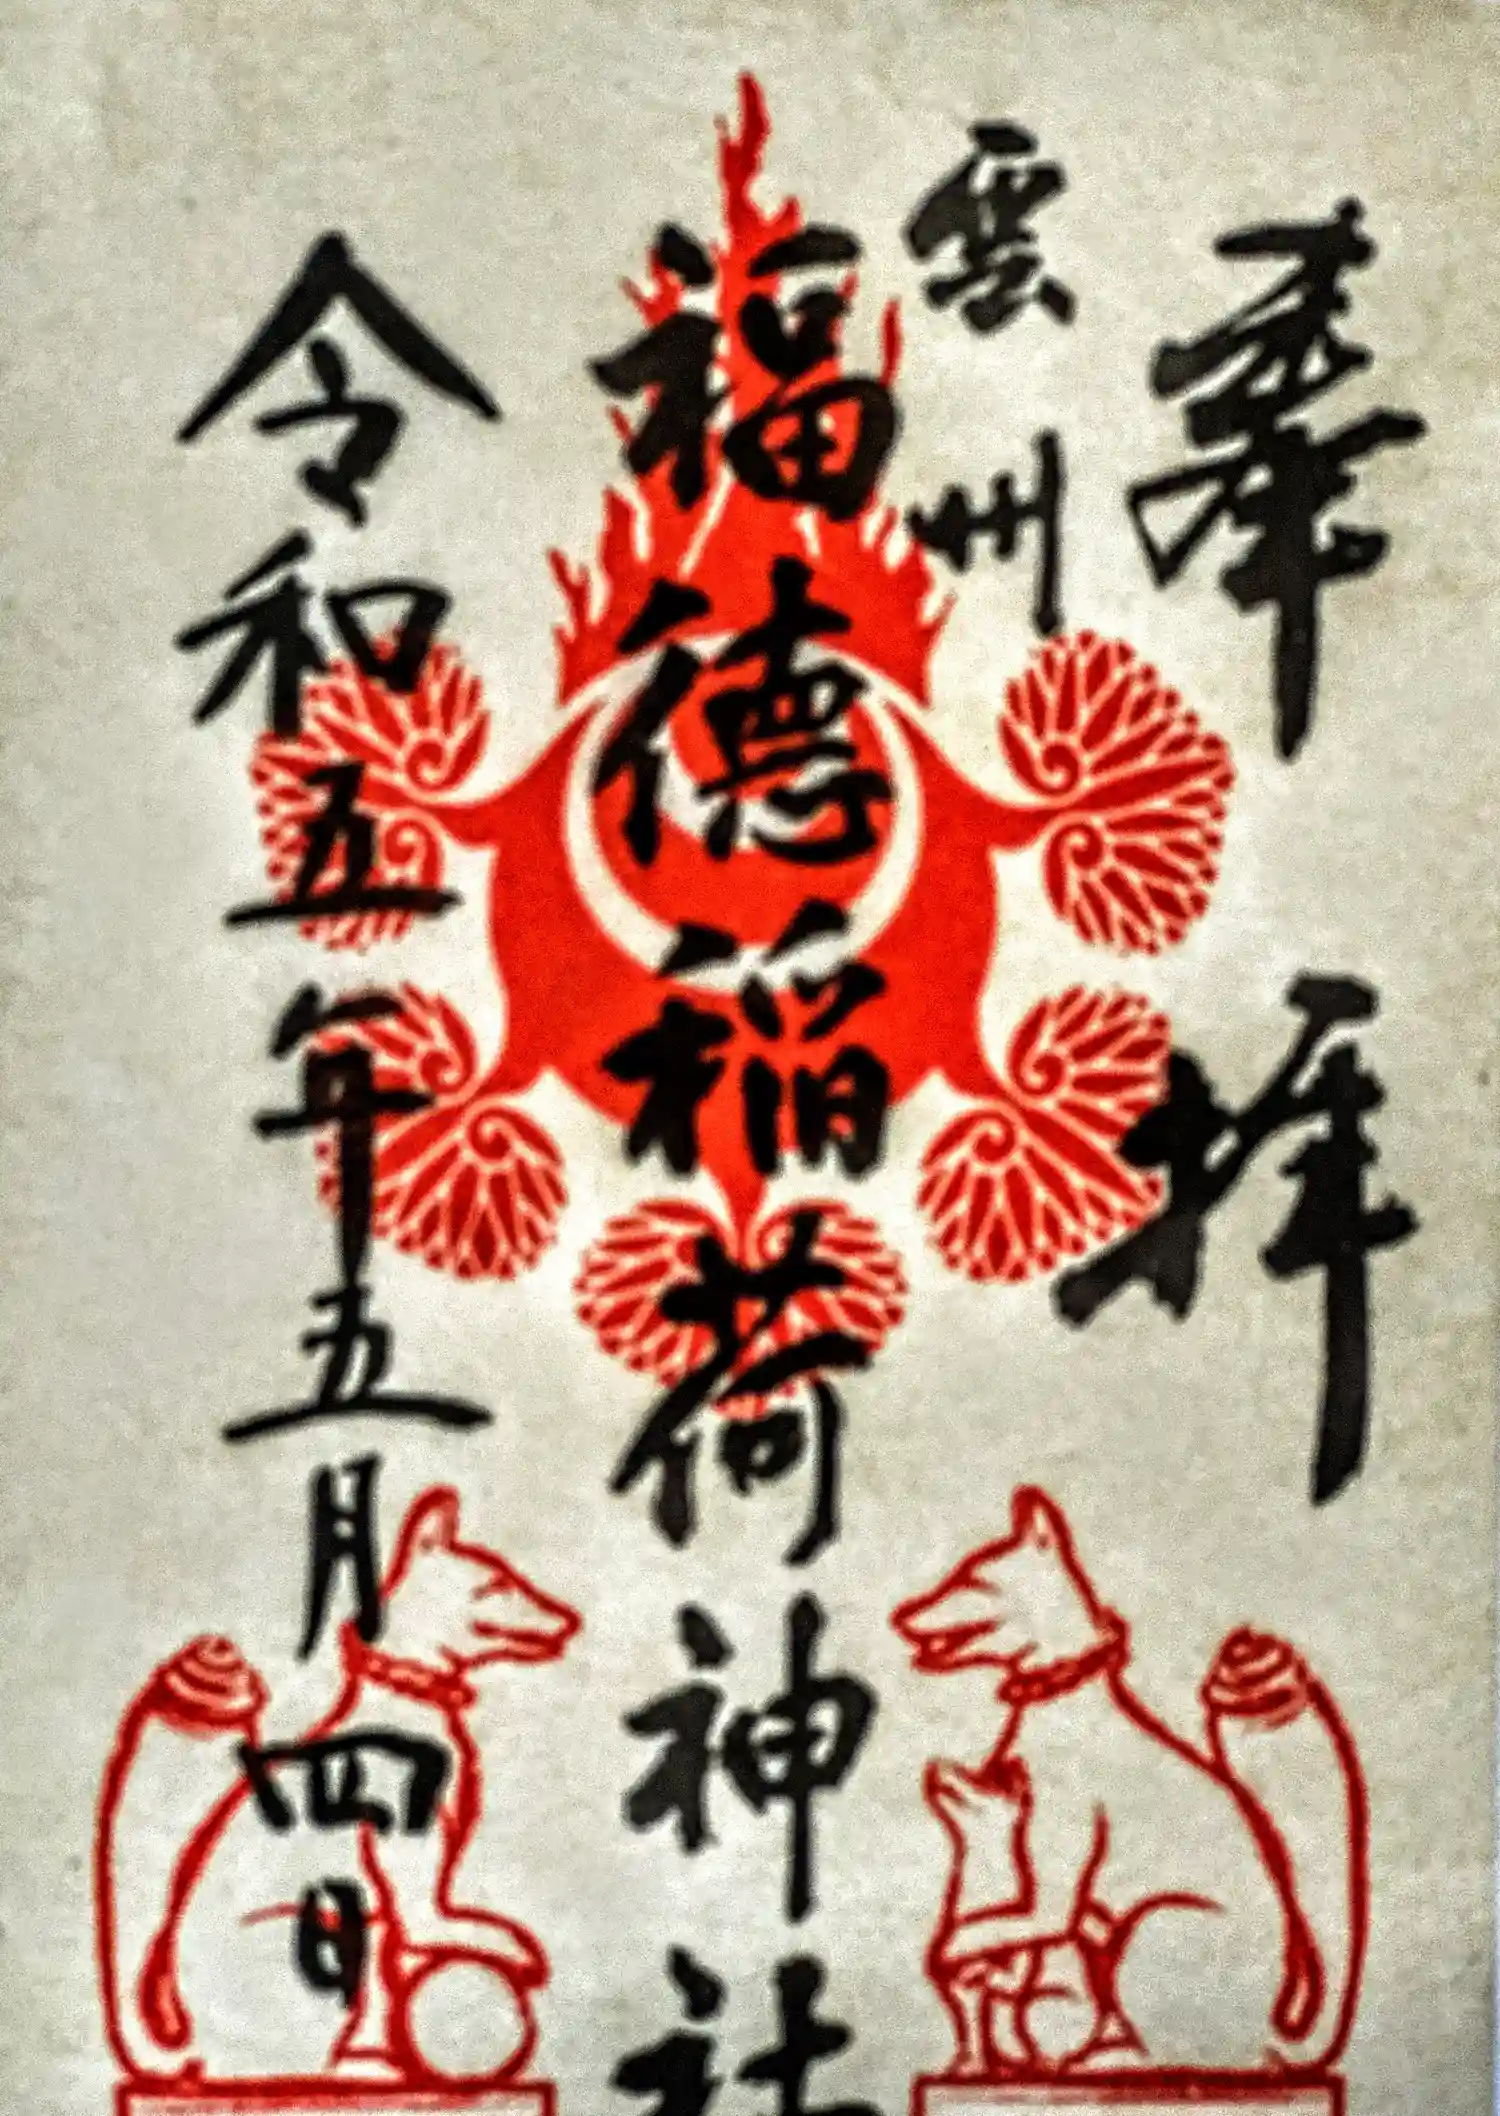 奉拝
雲州
福德稲荷神社
令和五年五月四日